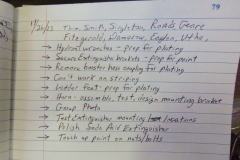 79
9/26/03 Tim, Smith, Singleton, Road, Geare
Fitzgerald, Damarow, Caplan, Utke,
→ Hydrant wrenches - prep for plating
→ Secure Extinguisher brackets - prep for paint
→ Remove booster hose coupling for plating
→ Con't work on striping
→ Ladder feet - prep for plating
→ Horn - assemble, test, design mounting bracket
→ Group Photo
→ Test Extinguisher mounting locations
→ Polish Soda Acid Extinguisher
→ Touch up paint on nuts/bolts